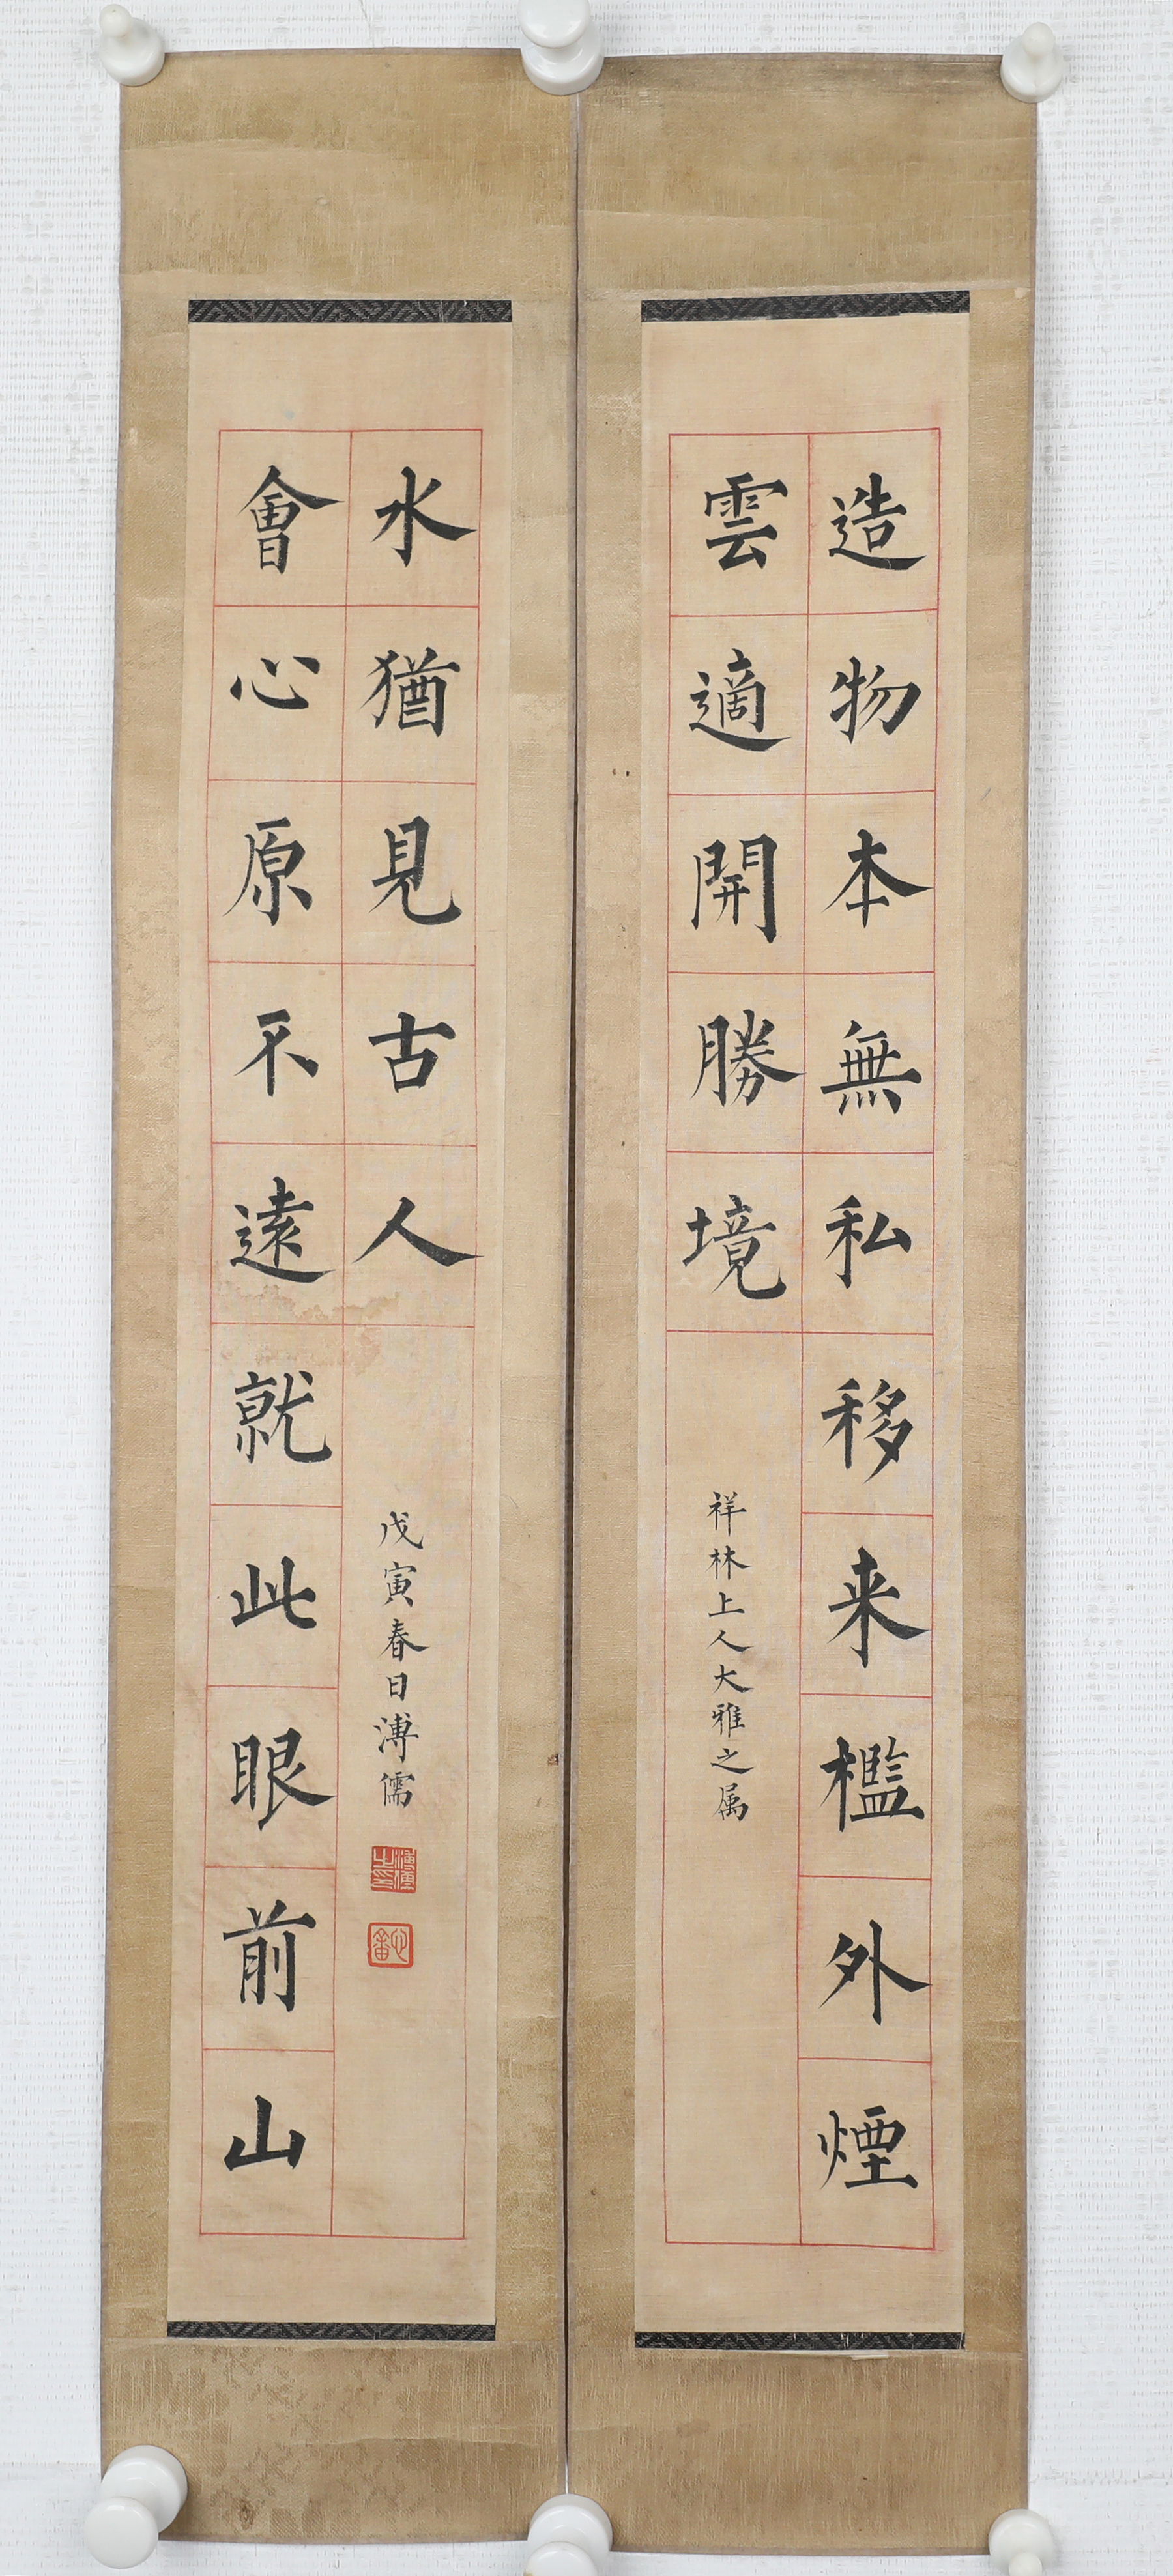 造物本無私移来檻外煙
雲適開勝境
祥林上人大雅之属
會心原不遠就此眼前山
水猶見古人
戊寅春日溥儒
溥儒之印
心畬